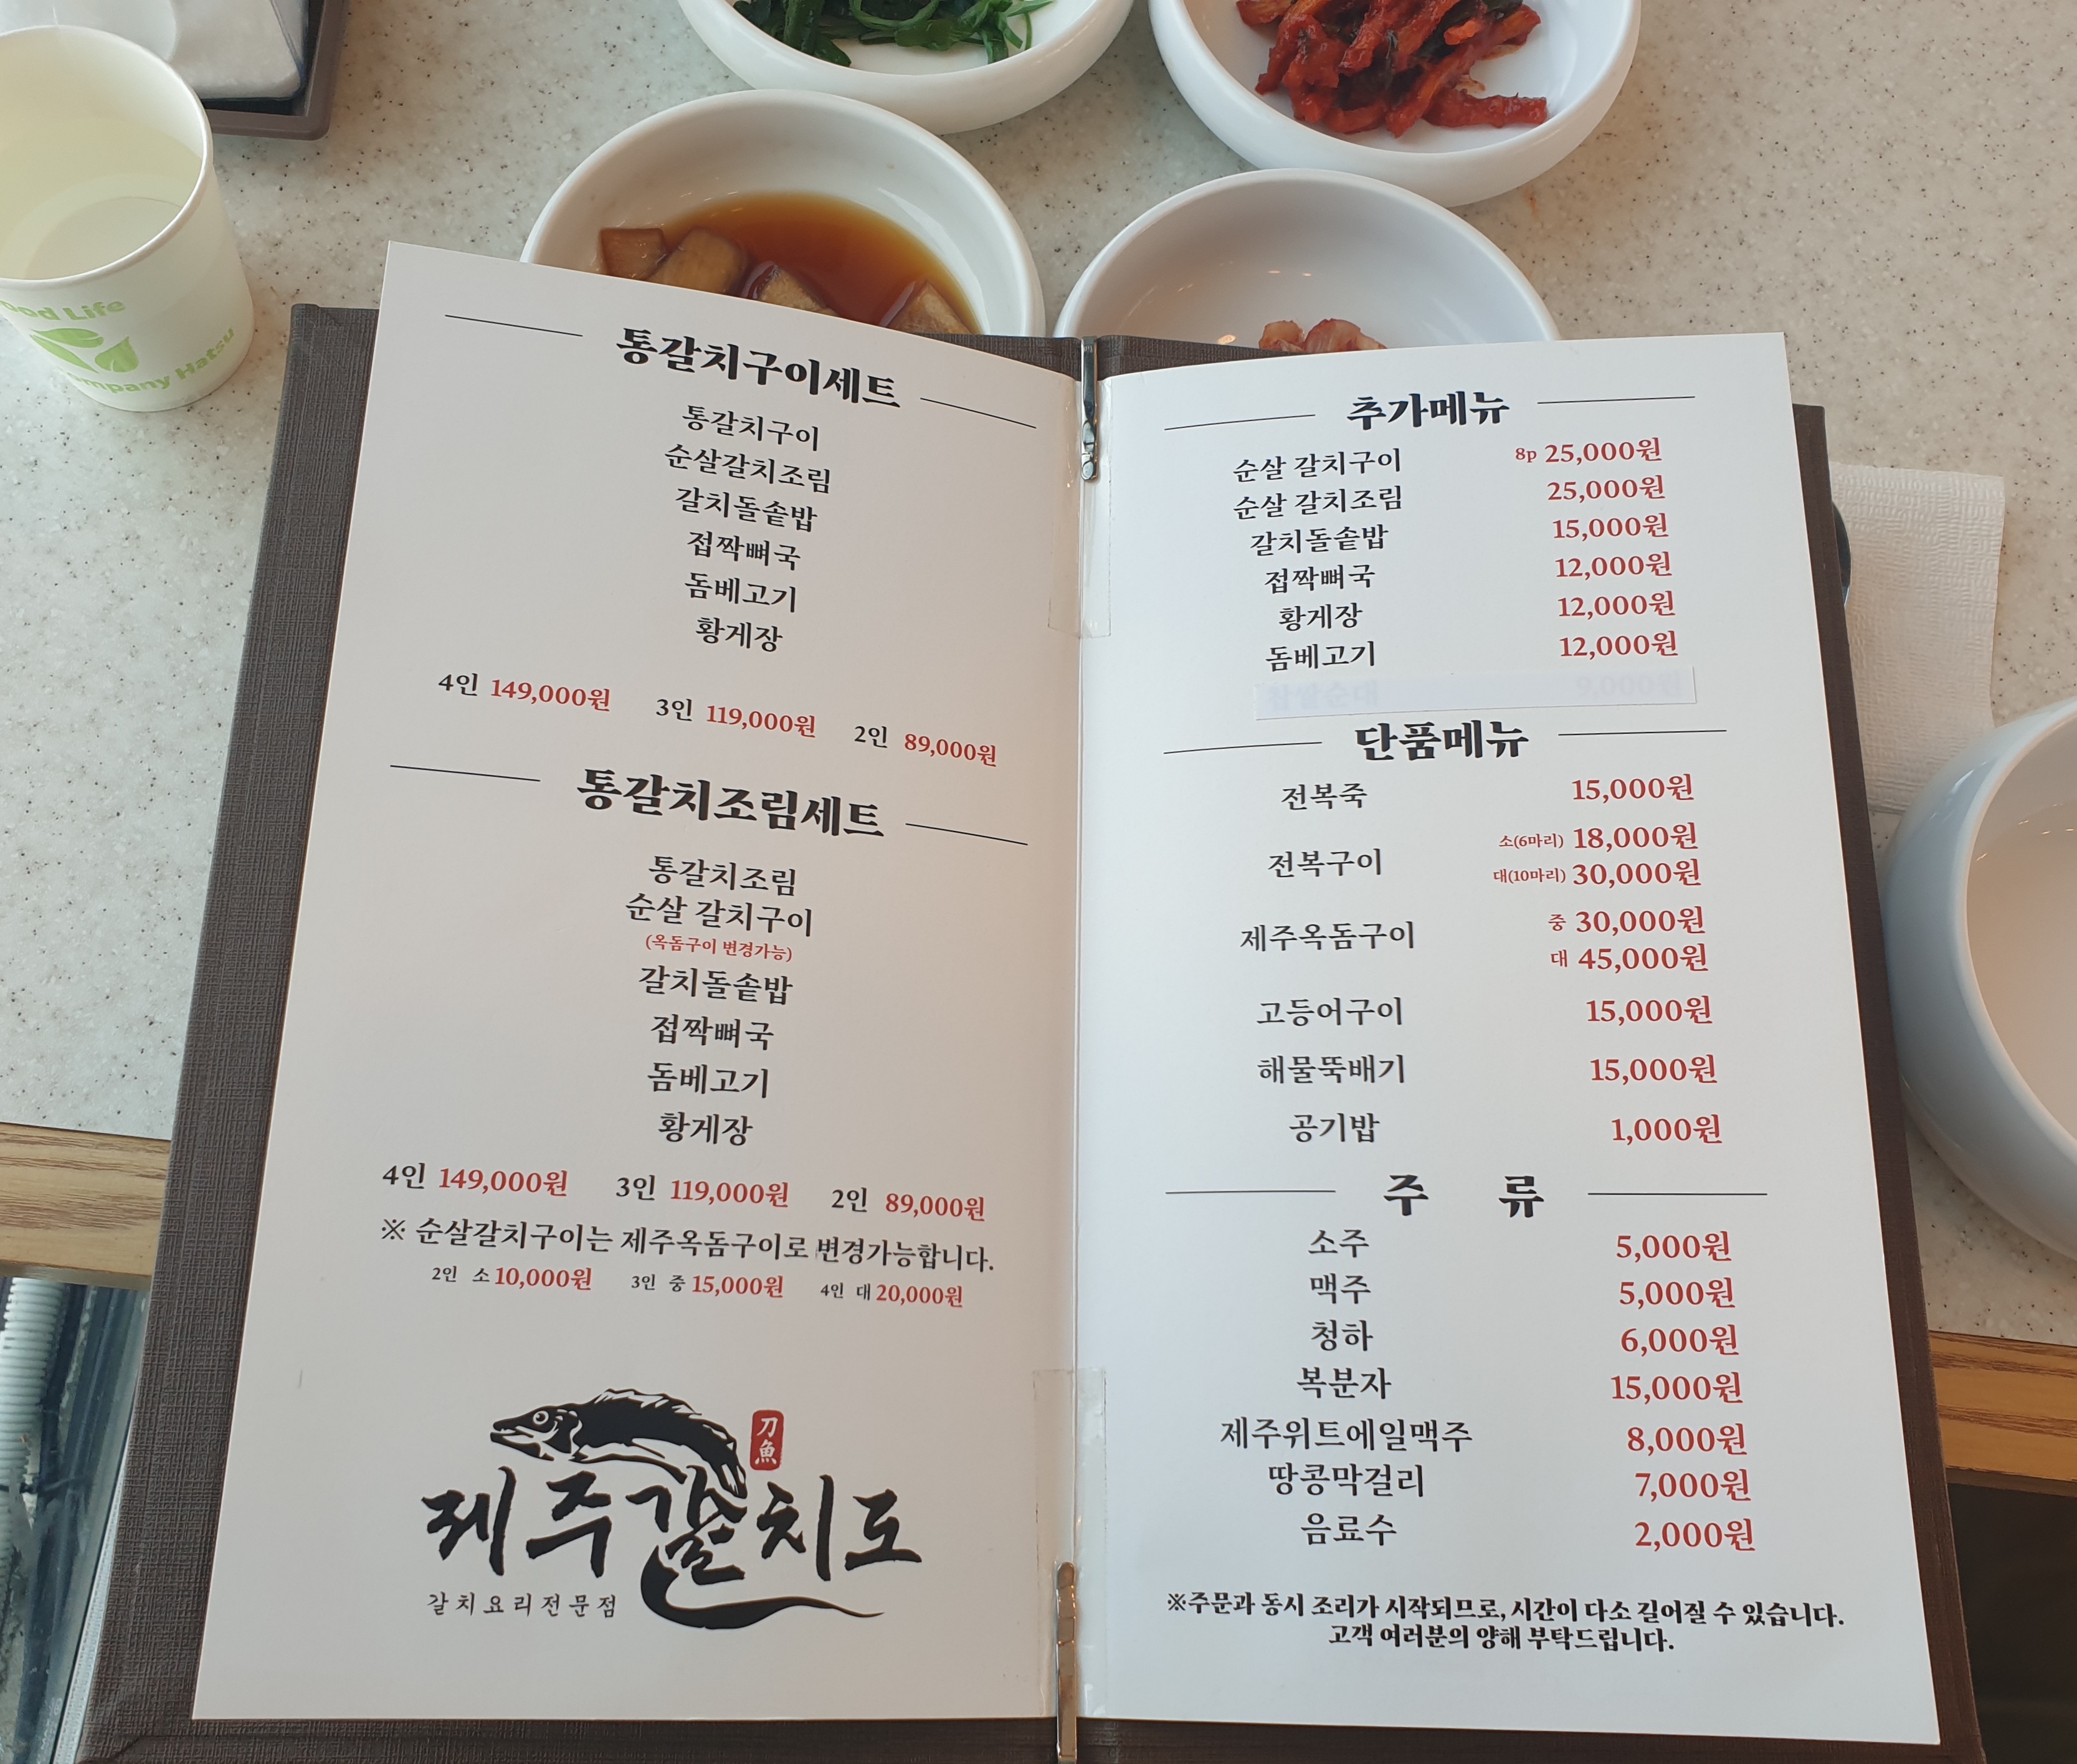 ood Life
ompany Hatsu
통갈치구이세트
통갈치구이
순살갈치조림
갈치돌솥밥
접짝뼈국
돔베고기
황게장
4인 149,000원 3인 119,000원 2인 89,000원
통갈치조림세트
통갈치조림
순살 갈치구이
(옥돔구이 변경가능)
갈치돌솥밥
접짝뼈국
돔베고기
황게장
4인 149,000원 3인 119,000원 2인 89,000원
※ 순살갈치구이는 제주옥돔구이로 변경가능합니다.
2인 소 10,000원 3인 중 15,000원 4인 대 20,000원
刀魚
제주갈치도
갈치요리전문점
추가메뉴
순살 갈치구이 8p 25,000원
순살 갈치조림 25,000원
갈치돌솥밥 15,000원
접짝뼈국 12,000원
황게장 12,000원
돔베고기 12,000원
찹쌀순대 9,000원
단품메뉴
전복죽 15,000원
전복구이 소(6마리) 18,000원
대(10마리) 30,000원
제주옥돔구이 중 30,000원
대 45,000원
고등어구이 15,000원
해물뚝배기 15,000원
공기밥 1,000원
주 류
소주 5,000원
맥주 5,000원
청하 6,000원
복분자 15,000원
제주위트에일맥주 8,000원
땅콩막걸리 7,000원
음료수 2,000원
※주문과 동시 조리가 시작되므로, 시간이 다소 길어질 수 있습니다.
고객 여러분의 양해 부탁드립니다.